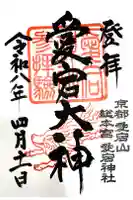 登拝
愛宕大神
京都愛宕山
総本宮 愛宕神社
令和八年
四月十一日